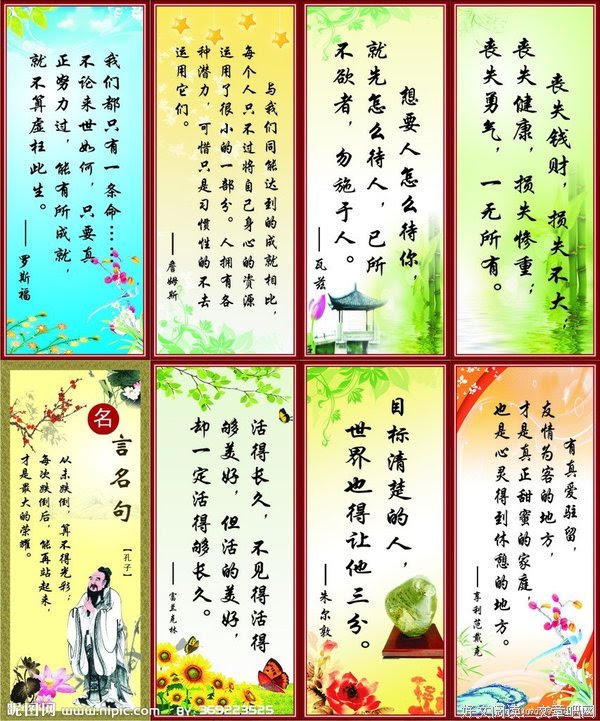 我们都只有一条命……
不论来世如何，只要真
正努力过，能有所成就，
就不算虚枉此生。
——罗斯福
与我们同能达到的成就相比，
每个人只不过将自己身心的资源
运用了很小的一部分。人拥有各
种潜力，可惜只是习惯性的不去
运用它们。
——詹姆斯
想要人怎么待你，
就先怎么待人，己所
不欲者，勿施于人。
——瓦兹
丧失钱财，损失不大；
丧失健康，损失惨重；
丧失勇气，一无所有。
名言名句
【孔子】
从未跌倒，算不得光彩；
每次跌倒后，能再站起来，
才是最大的荣耀。
活得长久，不见得活得
够美好，但活的美好，
却一定活得够长久。
——富兰克林
目标清楚的人，
世界也得让他三分。
——朱尔敦
有真爱驻留，
友情为客的地方，
才是真正甜蜜的家庭
也是心灵得到休憩的地方。
——享利范戴克
昵图网 www.nipic.com BY: 369223525